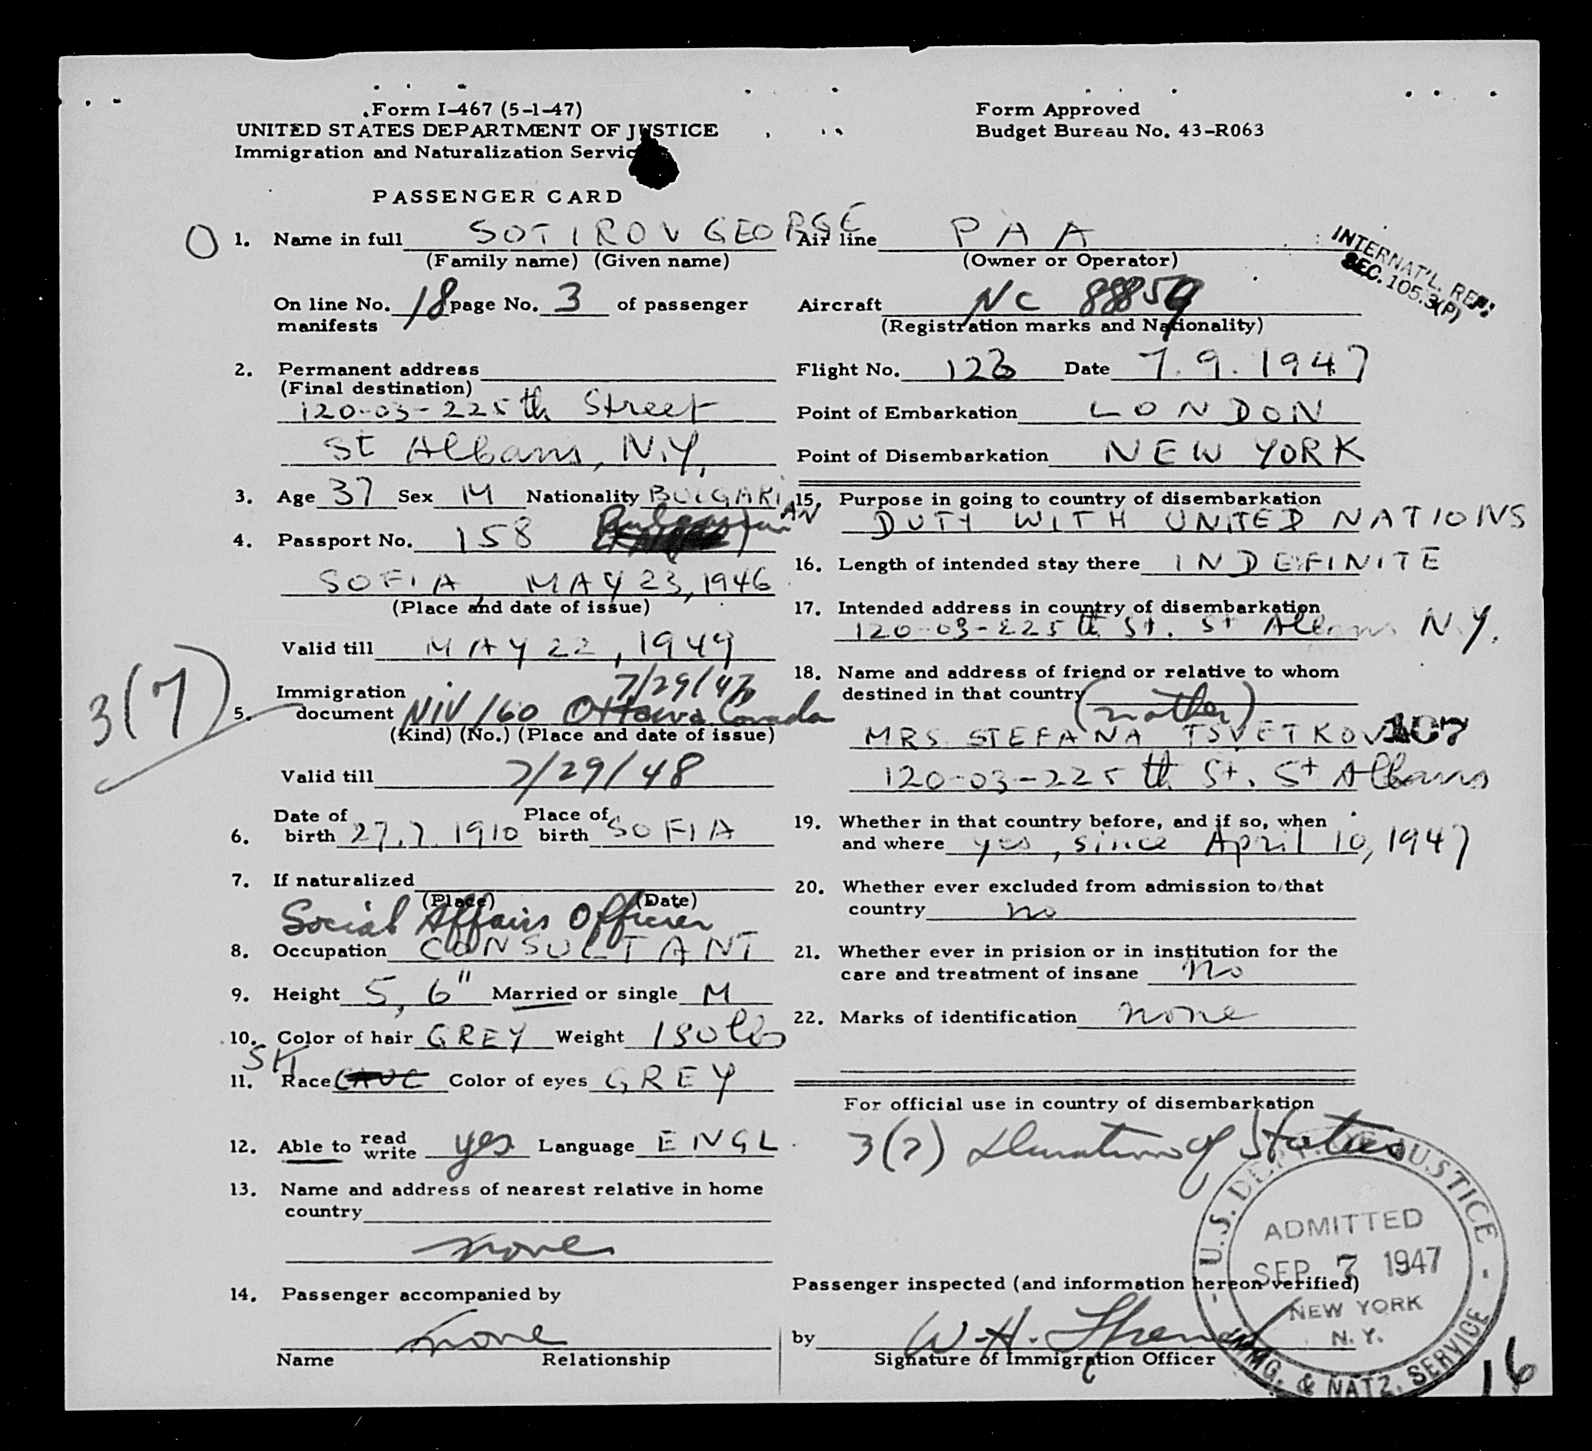 Form I-467 (5-1-47)
UNITED STATES DEPARTMENT OF JUSTICE
Immigration and Naturalization Servic
PASSENGER CARD
Form Approved
Budget Bureau No. 43-R063
INTERNAT'L. REP.
SEC. 105.3(P)
O 1. Name in full SOTIROV GEORGE
(Family name) (Given name)
On line No. 18 page No. 3 of passenger
manifests
2. Permanent address
(Final destination)
120-03-225th Street
St Albans, N.Y,
3. Age 37 Sex M Nationality BULGARIAN
4. Passport No. 158
SOFIA, MAY 23, 1946
(Place and date of issue)
Valid till MAY 22, 1949
3(7)
7/29/47
5. Immigration
document NIV/60 Ottawa Canada
(Kind) (No.) (Place and date of issue)
Valid till 7/29/48
6. Date of birth 27.7.1910 Place of birth SOFIA
7. If naturalized
(Place) (Date)
Social Affairs Officer
8. Occupation CONSULTANT
9. Height 5, 6" Married or single M
10. Color of hair GREY Weight 180 lbs
11. Race CAUC Color of eyes GREY
12. Able to read write yes Language ENGL.
13. Name and address of nearest relative in home
country
none
14. Passenger accompanied by
none
Name Relationship
Air line PAA
(Owner or Operator)
Aircraft NC 88859
(Registration marks and Nationality)
Flight No. 123 Date 7.9.1947
Point of Embarkation LONDON
Point of Disembarkation NEW YORK
15. Purpose in going to country of disembarkation
DUTY WITH UNITED NATIONS
16. Length of intended stay there INDEFINITE
17. Intended address in country of disembarkation
120-03-225th St. St Albans N.Y.
18. Name and address of friend or relative to whom
destined in that country (mother)
MRS. STEFANA TSVETKOV
107
120-03-225th St. St Albans
19. Whether in that country before, and if so, when
and where yes, since April 10, 1947
20. Whether ever excluded from admission to that
country no
21. Whether ever in prision or in institution for the
care and treatment of insane no
22. Marks of identification none
For official use in country of disembarkation
3(7) Duration of Status
U.S. DEPT. OF JUSTICE
ADMITTED
SEP 7 1947
NEW YORK
N.Y.
IMMG. & NATZ. SERVICE
Passenger inspected (and information hereon verified)
by W.H.
Signature of Immigration Officer
16